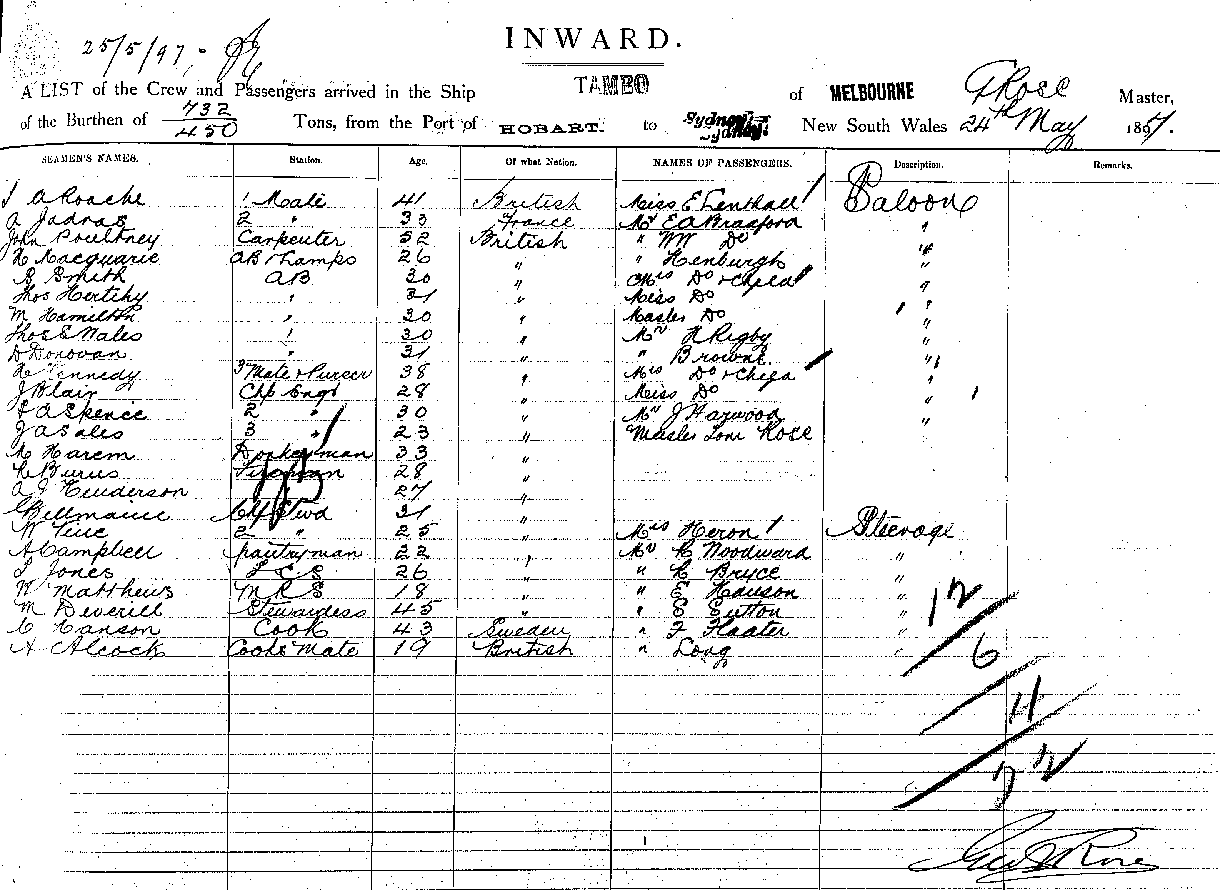 25/5/97
INWARD.
A LIST of the Crew and Passengers arrived in the Ship TAMBO of MELBOURNE G Rose Master,
of the Burthen of 732/450 Tons, from the Port of HOBART. to Sydney New South Wales 24th May 1897.
SEAMEN'S NAMES. Station. Age. Of what Nation. NAMES OF PASSENGERS. Description. Remarks.
A Roache 1 Mate 41 British Miss E Lenthall Saloon
2 " 33 France Mr E A Bradford "
John Poultney Carpenter 52 British " Wm Do "
Macquarie AB & Lamps 26 " " Henburgh "
Smith AB 30 " Mrs Do & Child "
Thos Hertihy " 31 " Miss Do "
M Hamilton " 30 " Master Do "
Thos E Wales " 30 " Mr H Rigby "
D Donovan " 31 " " Browne "
Kennedy 3 Mate & Purser 38 " Mrs Do & Child "
J Blair Chf Engr 28 " Miss Do "
A Spence 2 " 30 " Mr J Harwood "
J A Sales 3 " 23 " Master Rose "
Harem Donkeyman 33 "
Burns Fireman 28 "
A J Henderson 27 "
Bellmaine Chf Stwd 31 "
2 " 25 " Mrs Heron Steerage
A Campbell pantryman 22 " Mr C Woodward "
L Jones F C S 26 " " C Bryce "
W Matthews M R S 18 " " E Hanson "
M Deverill Stewardess 45 " " E Sutton "
C Hanson Cook 43 Sweden " F Flaater "
A Alcock Cooks Mate 19 British " Long "
12
6
4
22
Geo J Rose